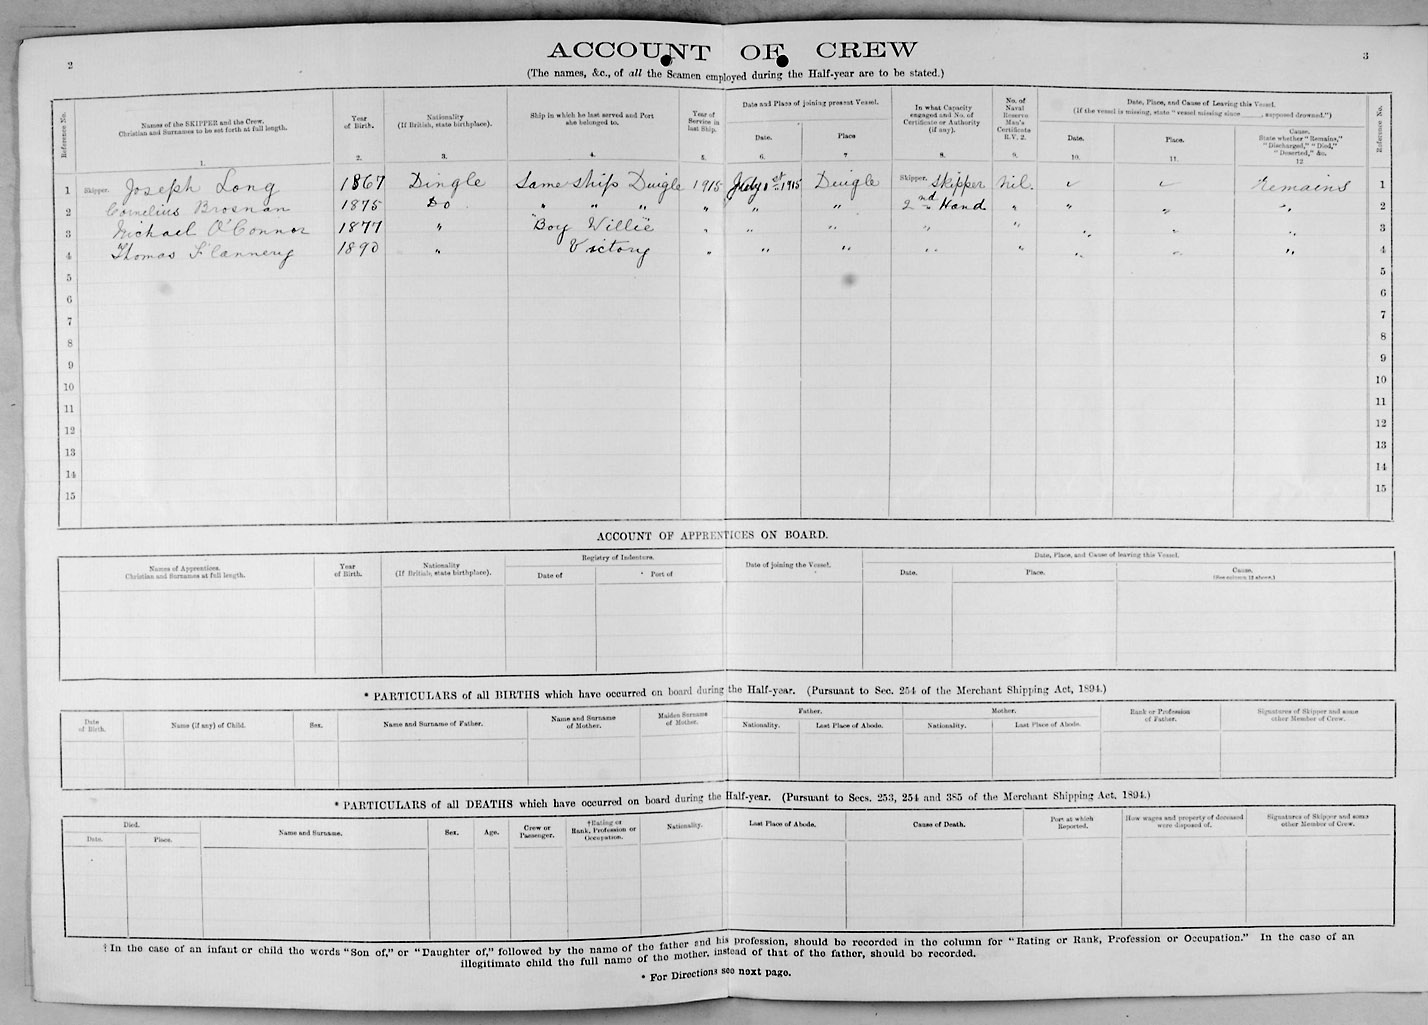 2
ACCOUNT OF CREW
3
(The names, &c., of all the Seamen employed during the Half-year are to be stated.)
Reference No.
Names of the SKIPPER and the Crew.
Christian and Surnames to be set forth at full length.
1.
Year
of Birth.
2.
Nationality
(If British, state birthplace).
3.
Ship in which he last served and Port
she belonged to.
4.
Year of
Service in
last Ship.
5.
Date and Place of joining present Vessel.
Date.
6.
Place
7
In what Capacity
engaged and No. of
Certificate or Authority
(if any).
8.
No. of
Naval
Reserve
Man's
Certificate
R.V. 2.
9.
Date, Place, and Cause of Leaving this Vessel.
(If the vessel is missing, state "vessel missing since ______, supposed drowned.")
Date.
10.
Place.
11.
Cause.
State whether "Remains,"
"Discharged," "Died,"
"Deserted," &c.
12
Reference No.
1 Skipper. Joseph Long 1867 Dingle Same ship Dingle 1915 July 1st 1915 Dingle Skipper. Skipper Nil. ✓ ✓ Remains 1
2 Cornelius Brosnan 1875 Do " " " " " " 2nd Hand " " " " 2
3 Michael O'Connor 1877 " "Boy Willie" " " " " " " " " 3
4 Thomas Flannery 1890 " Victory " " " " " " " " 4
5 5
6 6
7 7
8 8
9 9
10 10
11 11
12 12
13 13
14 14
15 15
ACCOUNT OF APPRENTICES ON BOARD.
Names of Apprentices.
Christian and Surnames at full length.
Year
of Birth.
Nationality
(If British, state birthplace).
Registry of Indenture.
Date of
Port of
Date of joining the Vessel.
Date, Place, and Cause of leaving this Vessel.
Date.
Place.
Cause.
(See column 12 above.)
* PARTICULARS of all BIRTHS which have occurred on board during the Half-year. (Pursuant to Sec. 254 of the Merchant Shipping Act, 1894.)
Date
of Birth.
Name (if any) of Child.
Sex.
Name and Surname of Father.
Name and Surname
of Mother.
Maiden Surname
of Mother.
Father.
Nationality.
Last Place of Abode.
Mother.
Nationality.
Last Place of Abode.
Rank or Profession
of Father.
Signatures of Skipper and some
other Member of Crew.
* PARTICULARS of all DEATHS which have occurred on board during the Half-year. (Pursuant to Secs. 253, 254 and 385 of the Merchant Shipping Act, 1894.)
Died.
Date.
Place.
Name and Surname.
Sex.
Age.
Crew or
Passenger.
†Rating or
Rank, Profession or
Occupation.
Nationality.
Last Place of Abode.
Cause of Death.
Port at which
Reported.
How wages and property of deceased
were disposed of.
Signatures of Skipper and some
other Member of Crew.
†In the case of an infant or child the words "Son of," or "Daughter of," followed by the name of the father and his profession, should be recorded in the column for "Rating or Rank, Profession or Occupation." In the case of an
illegitimate child the full name of the mother, instead of that of the father, should be recorded.
* For Directions see next page.